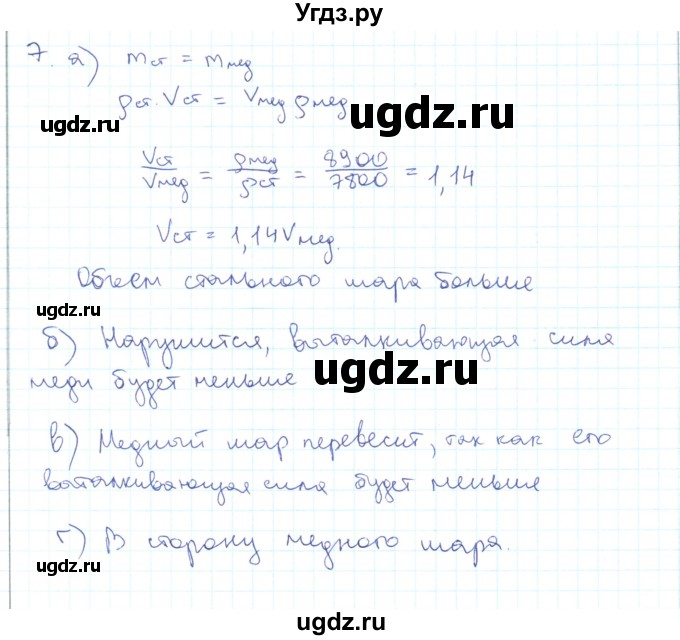 Угдз.ру
7. а) mст = mмед
ρст. Vст = Vмед ρмед
ugdz.ru
ugdz.ru
Vст/Vмед = ρмед/ρст = 8900/7800 = 1,14
Vст = 1,14Vмед.
Объем стального шара больше
ugdz.ru
б) Нарушится, выталкивающая сила
меди будет меньше
ugdz.ru
в) Медный шар перевесит, так как его
выталкивающая сила будет меньше
г) В сторону медного шара.
ugdz.ru
ugdz.ru